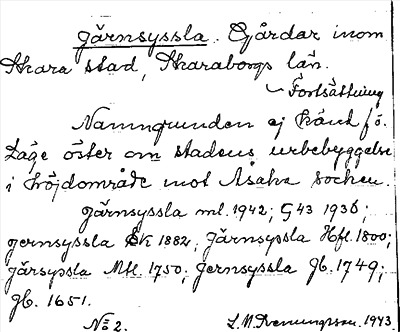 Järnsyssla. Gårdar inom
Skara stad, Skaraborgs län.
Fortsättning
Namngrunden ej känd f.ö.
Läge öster om stadens urbebyggelse
i höjdområde mot Asaka socken.
Järnsyssla ml. 1942; G 43 1936;
Jernsyssla Ek 1882; Järnsyssla Hfl. 1800;
Järsyssla Mtl. 1750; Jernsyssla Jb. 1749;
Jb. 1651.
No 2. 1943